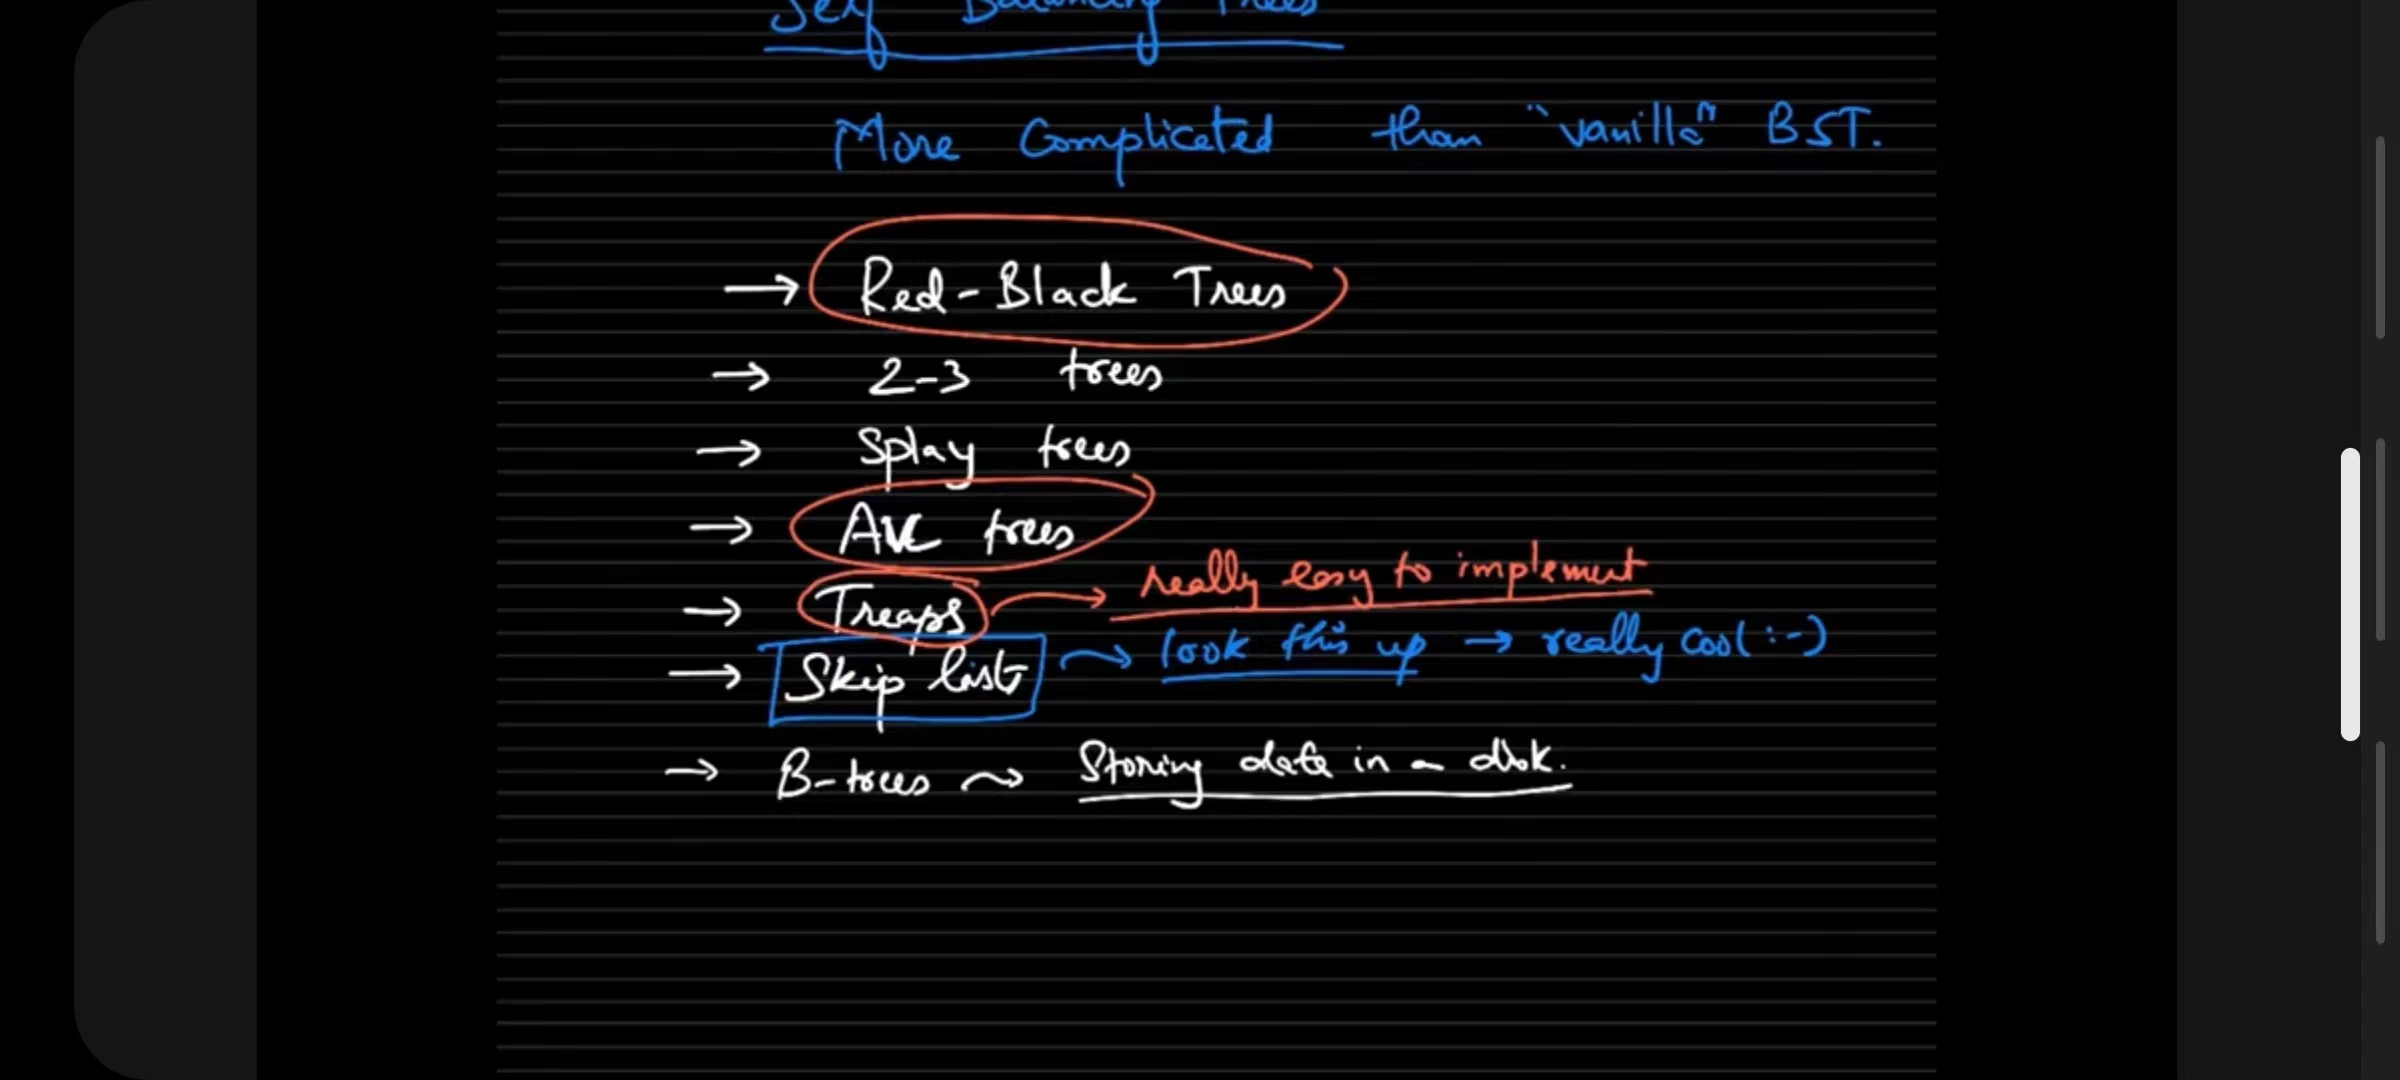 Self Balancing Trees
More Complicated than "vanilla" BST.
→ Red-Black Trees
→ 2-3 trees
→ Splay trees
→ AVL trees
→ Treaps → really easy to implement
→ Skip list → look this up → really cool :-)
→ B-trees → Storing data in a disk.